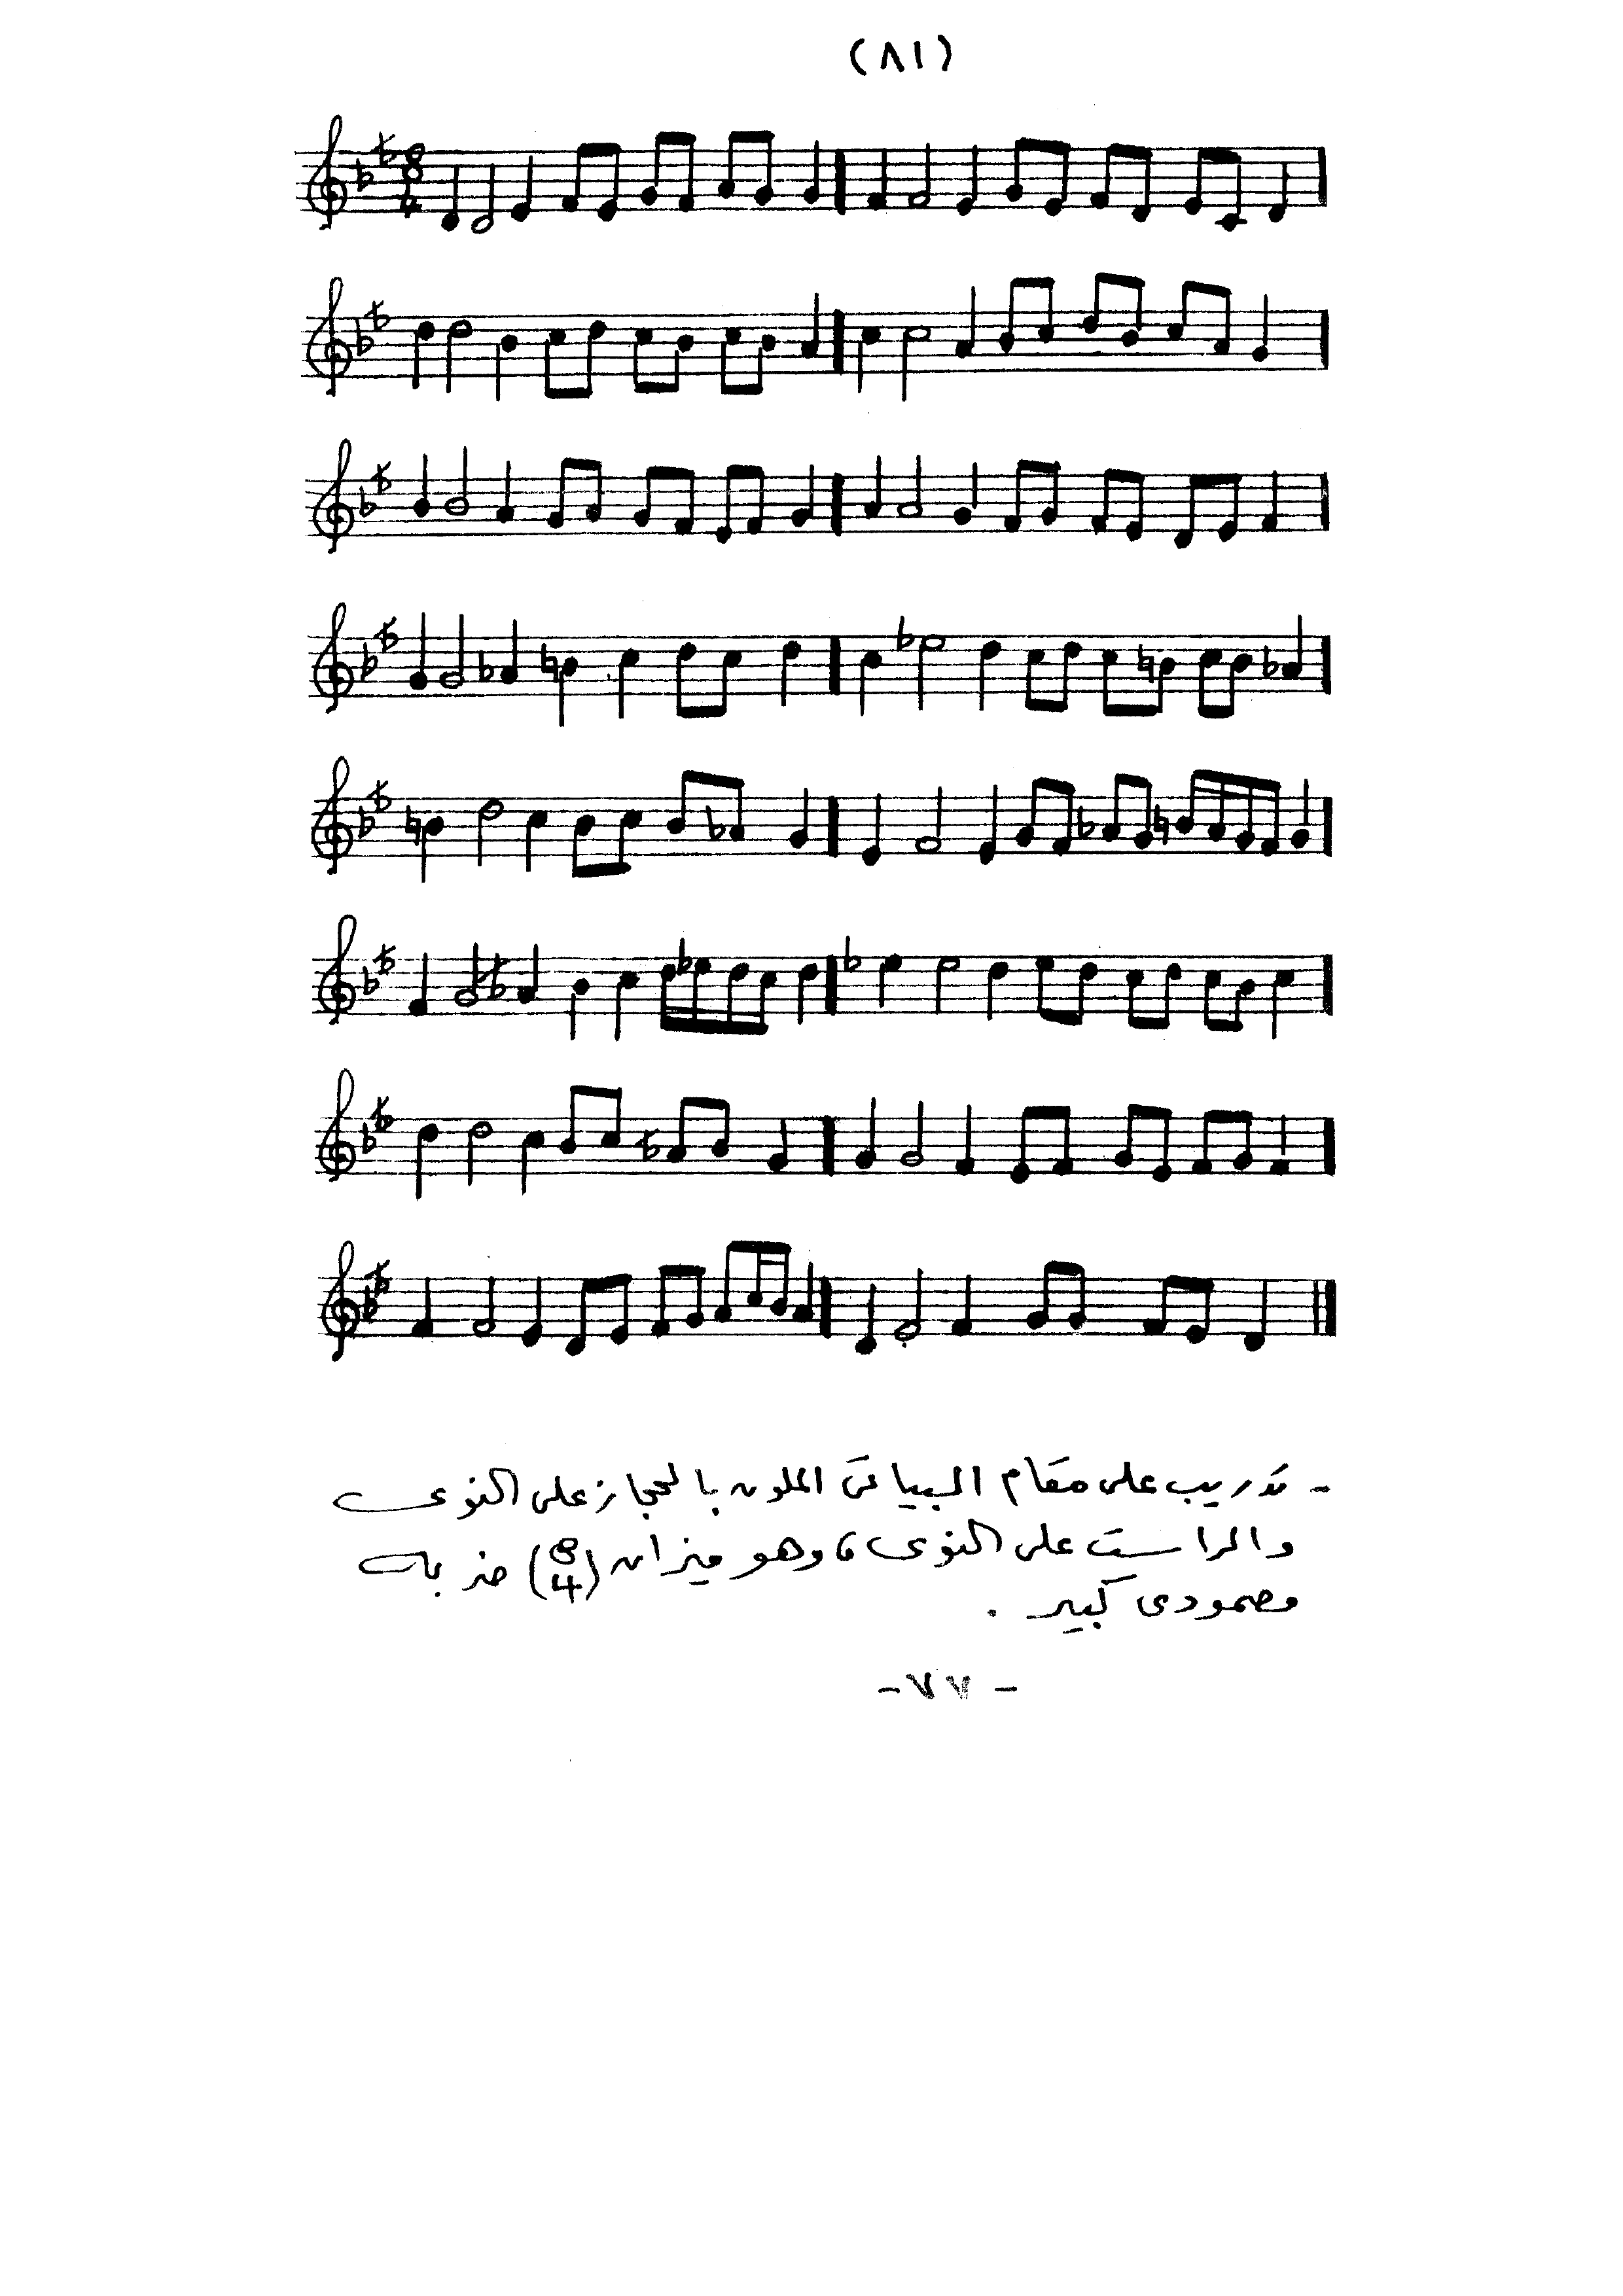 (٨١)
8
4
- تدريب على مقام البياتى الملون بالحجاز على النوى
والراست على النوى ، وهو ميزان (8/4) ضرباته
مصمودى كبير .
- ٧٧ -